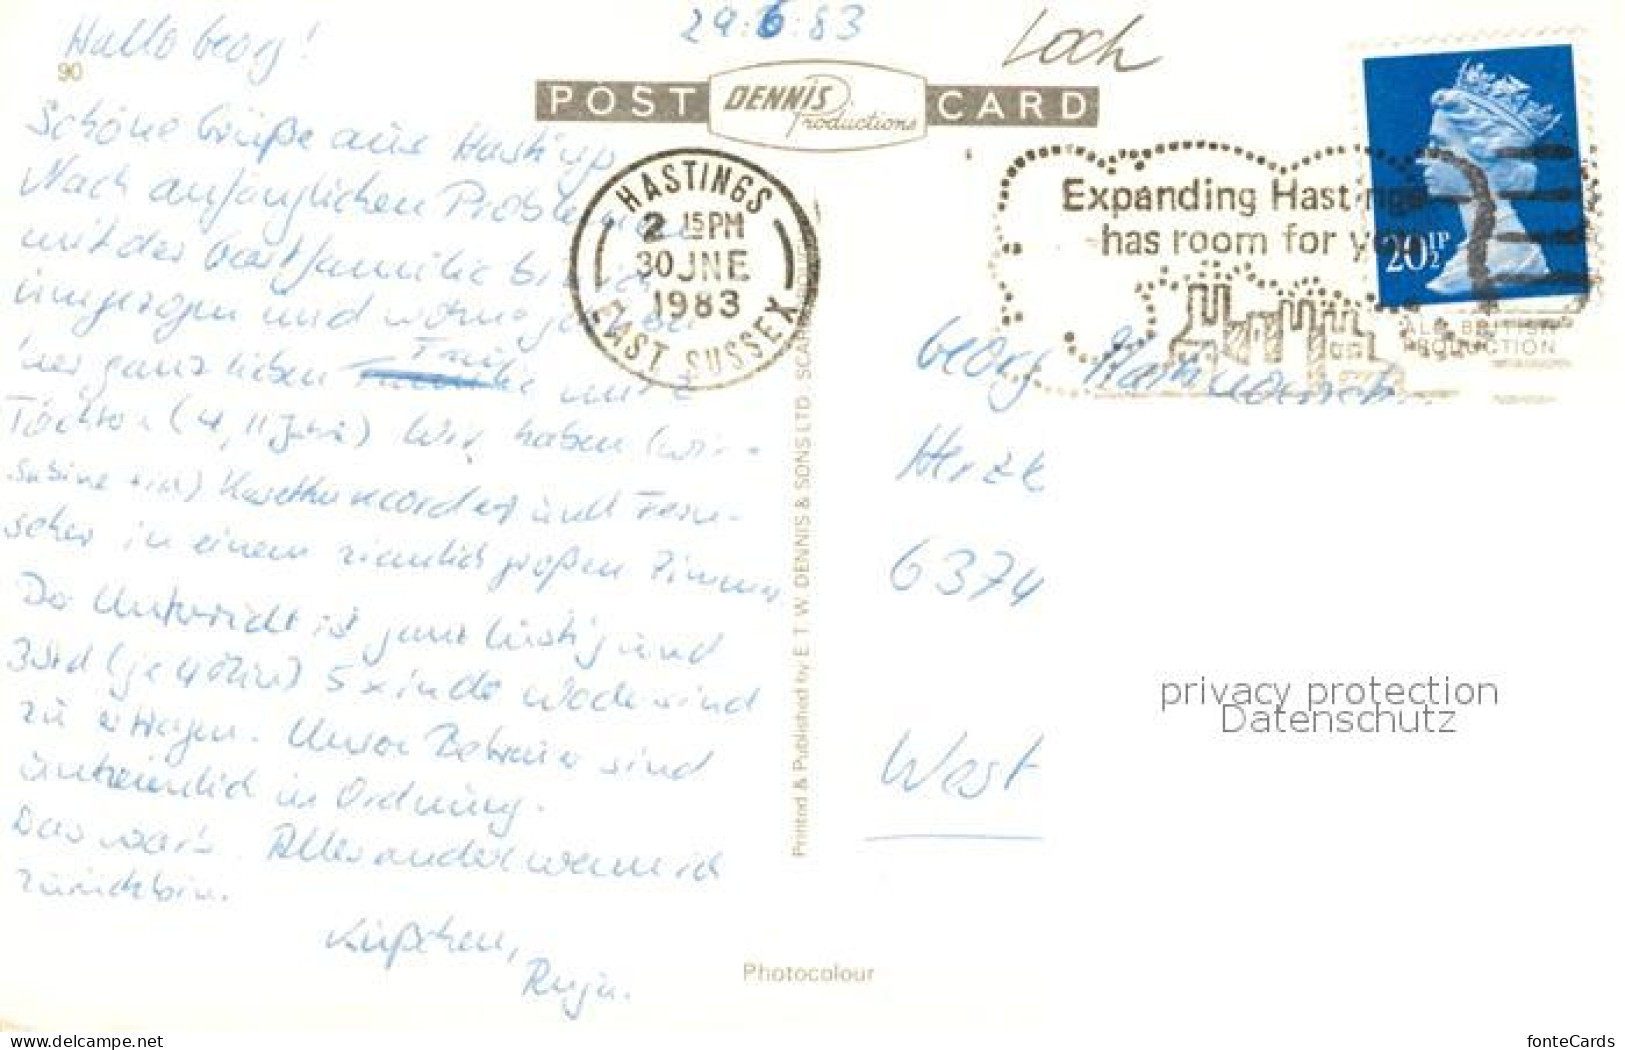 29.6.83
Loch
Hallo Georg!
90
POST DENNIS Productions CARD
Schöne Grüße aus Hastings
Nach anfänglichen Problemen
mit der Gastfamilie bin ich
umgezogen und wohne jetzt bei
ganz lieben Familie mit 2
Töchtern (4, 11 Jahre) Wir haben (wir =
Sabine + ich) Kassettenrecorder und Fern-
seher in einem ziemlich großen Zimmer
Der Unterricht ist ganz lustig und
3 Std (je 40 Min) 5 x in der Woche sind
zu ertragen. Unsere Betreuer sind
unheimlich in Ordnung.
Das war's. Alles andere wenn ich
zurück bin.
Küßchen,
HASTINGS
2 15 PM
30 JNE
1983
EAST SUSSEX
Expanding Hastings
has room for you
20½P
ALL BRITISH
PRODUCTION
Georg
6374
West
Printed & Published by E. T. W. DENNIS & SONS LTD. SCARBOROUGH
privacy protection
Datenschutz
Photocolour
www.delcampe.net
fonteCards